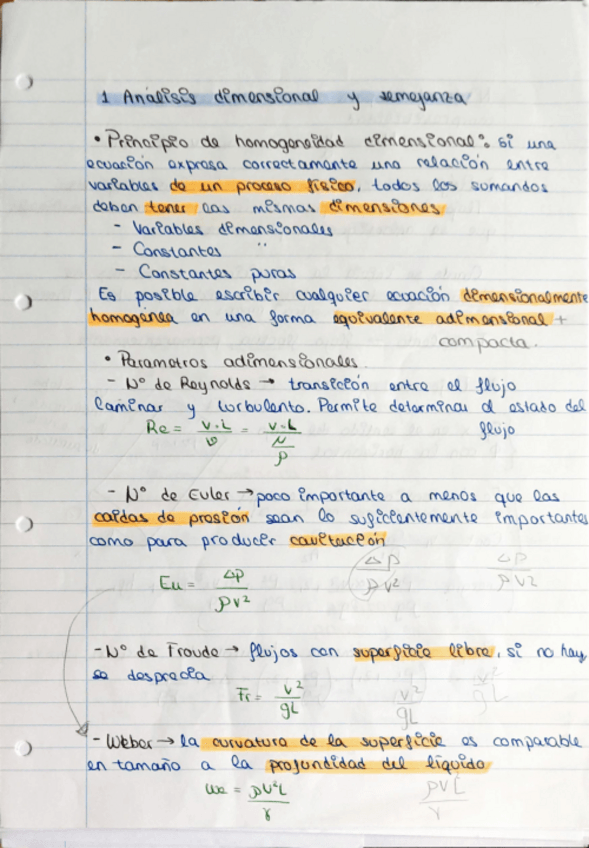 1 Análisis dimensional y semejanza
• Principio de homogeneidad dimensional: Si una
ecuación expresa correctamente una relación entre
variables de un proceso físico, todos los sumandos
deben tener las mismas dimensiones
- Variables dimensionales
- Constantes "
- Constantes puras
Es posible escribir cualquier ecuación dimensionalmente
homogénea en una forma equivalente adimensional +
compacta.
• Parametros adimensionales.
- Nº de Reynolds → transición entre el flujo
laminar y turbulento. Permite determinar el estado del
flujo
Re = v·L / ν = v·L / (μ/ρ)
- Nº de Euler → poco importante a menos que las
caídas de presión sean lo suficientemente importantes
como para producir cavitación
Eu = Δp / ρv² Δp / ρv² Δp / ρv²
- Nº de Froude → flujos con superficie libre, si no hay
se desprecia
Fr = v² / gL v² / gL v² / gL
- Weber → la curvatura de la superficie es comparable
en tamaño a la profundidad del líquido
We = ρv²L / γ ρvL / γ